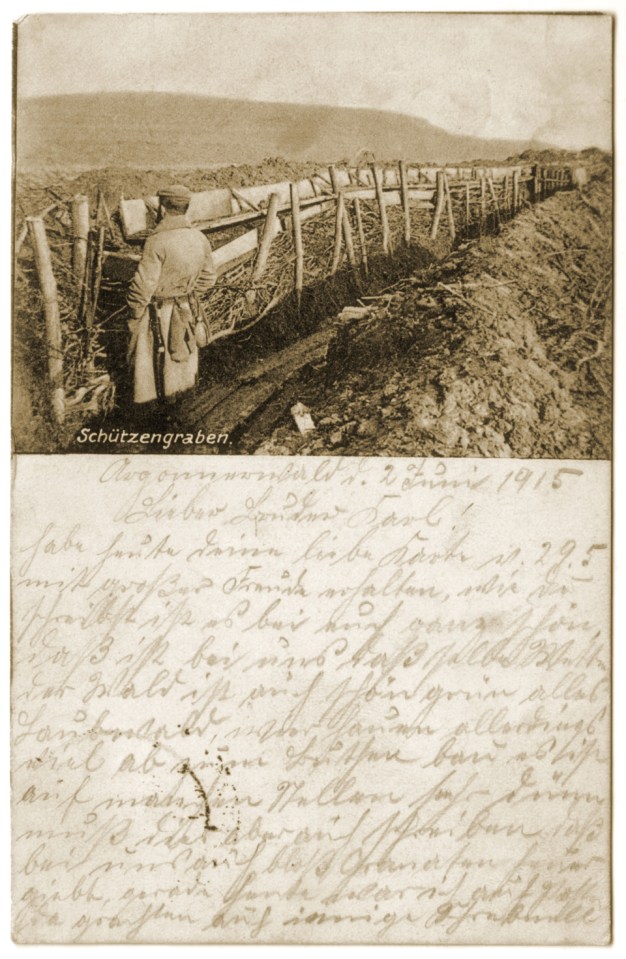 Schützengraben.
Argonnerwald d. 2 Juni 1915
Lieber Bruder Karl!
habe heute deine liebe Karte v. 29.5
mit großer Freude erhalten, wie du
schreibst ist es bei euch ganz schön,
daß ist bei uns daß selbe
der Wald ist auch schön grün alles
Laubwald, wier hauen allerdings
viel ab zum bau es ist
auf manchen Stellen sehr dünn
muß dier aber auch schreiben daß
bei uns auch Granaten feuer
giebt, gerade heute war ich auf
auf einige